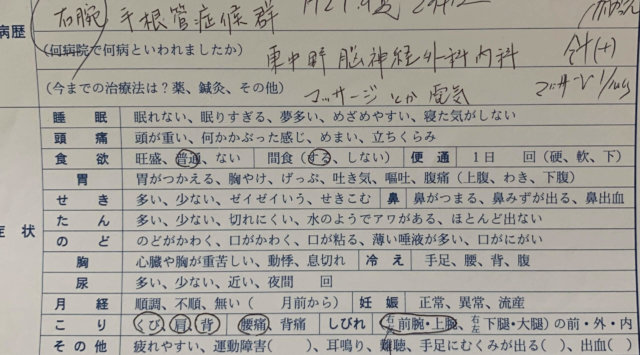 病歴
右腕 手根管症候群
(何病院で何病といわれましたか) 東中野脳神経外科内科 針(+)
(今までの治療法は？薬、鍼灸、その他) マッサージとか電気
症状
睡眠 眠れない、眠りすぎる、夢多い、めざめやすい、寝た気がしない
頭痛 頭が重い、何かかぶった感じ、めまい、立ちくらみ
食欲 旺盛、普通、ない 間食(する、しない) 便通 1日 回(硬、軟、下)
胃 胃がつかえる、胸やけ、げっぷ、吐き気、嘔吐、腹痛(上腹、わき、下腹)
せき 多い、少ない、ゼイゼイいう、せきこむ 鼻 鼻がつまる、鼻みずが出る、鼻出血
たん 多い、少ない、切れにくい、水のようでアワがある、ほとんど出ない
のど のどがかわく、口がかわく、口が粘る、薄い唾液が多い、口がにがい
胸 心臓や胸が重苦しい、動悸、息切れ 冷え 手足、腰、背、腹
尿 多い、少ない、近い、夜間 回
月経 順調、不順、無い( 月前から) 妊娠 正常、異常、流産
こり くび、肩、背 腰痛、背痛 しびれ (右左前腕・上腕、右左下腿・大腿)の前・外・内
その他 疲れやすい、運動障害( )、耳鳴り、難聴、手足にむくみがある( )、出血( )